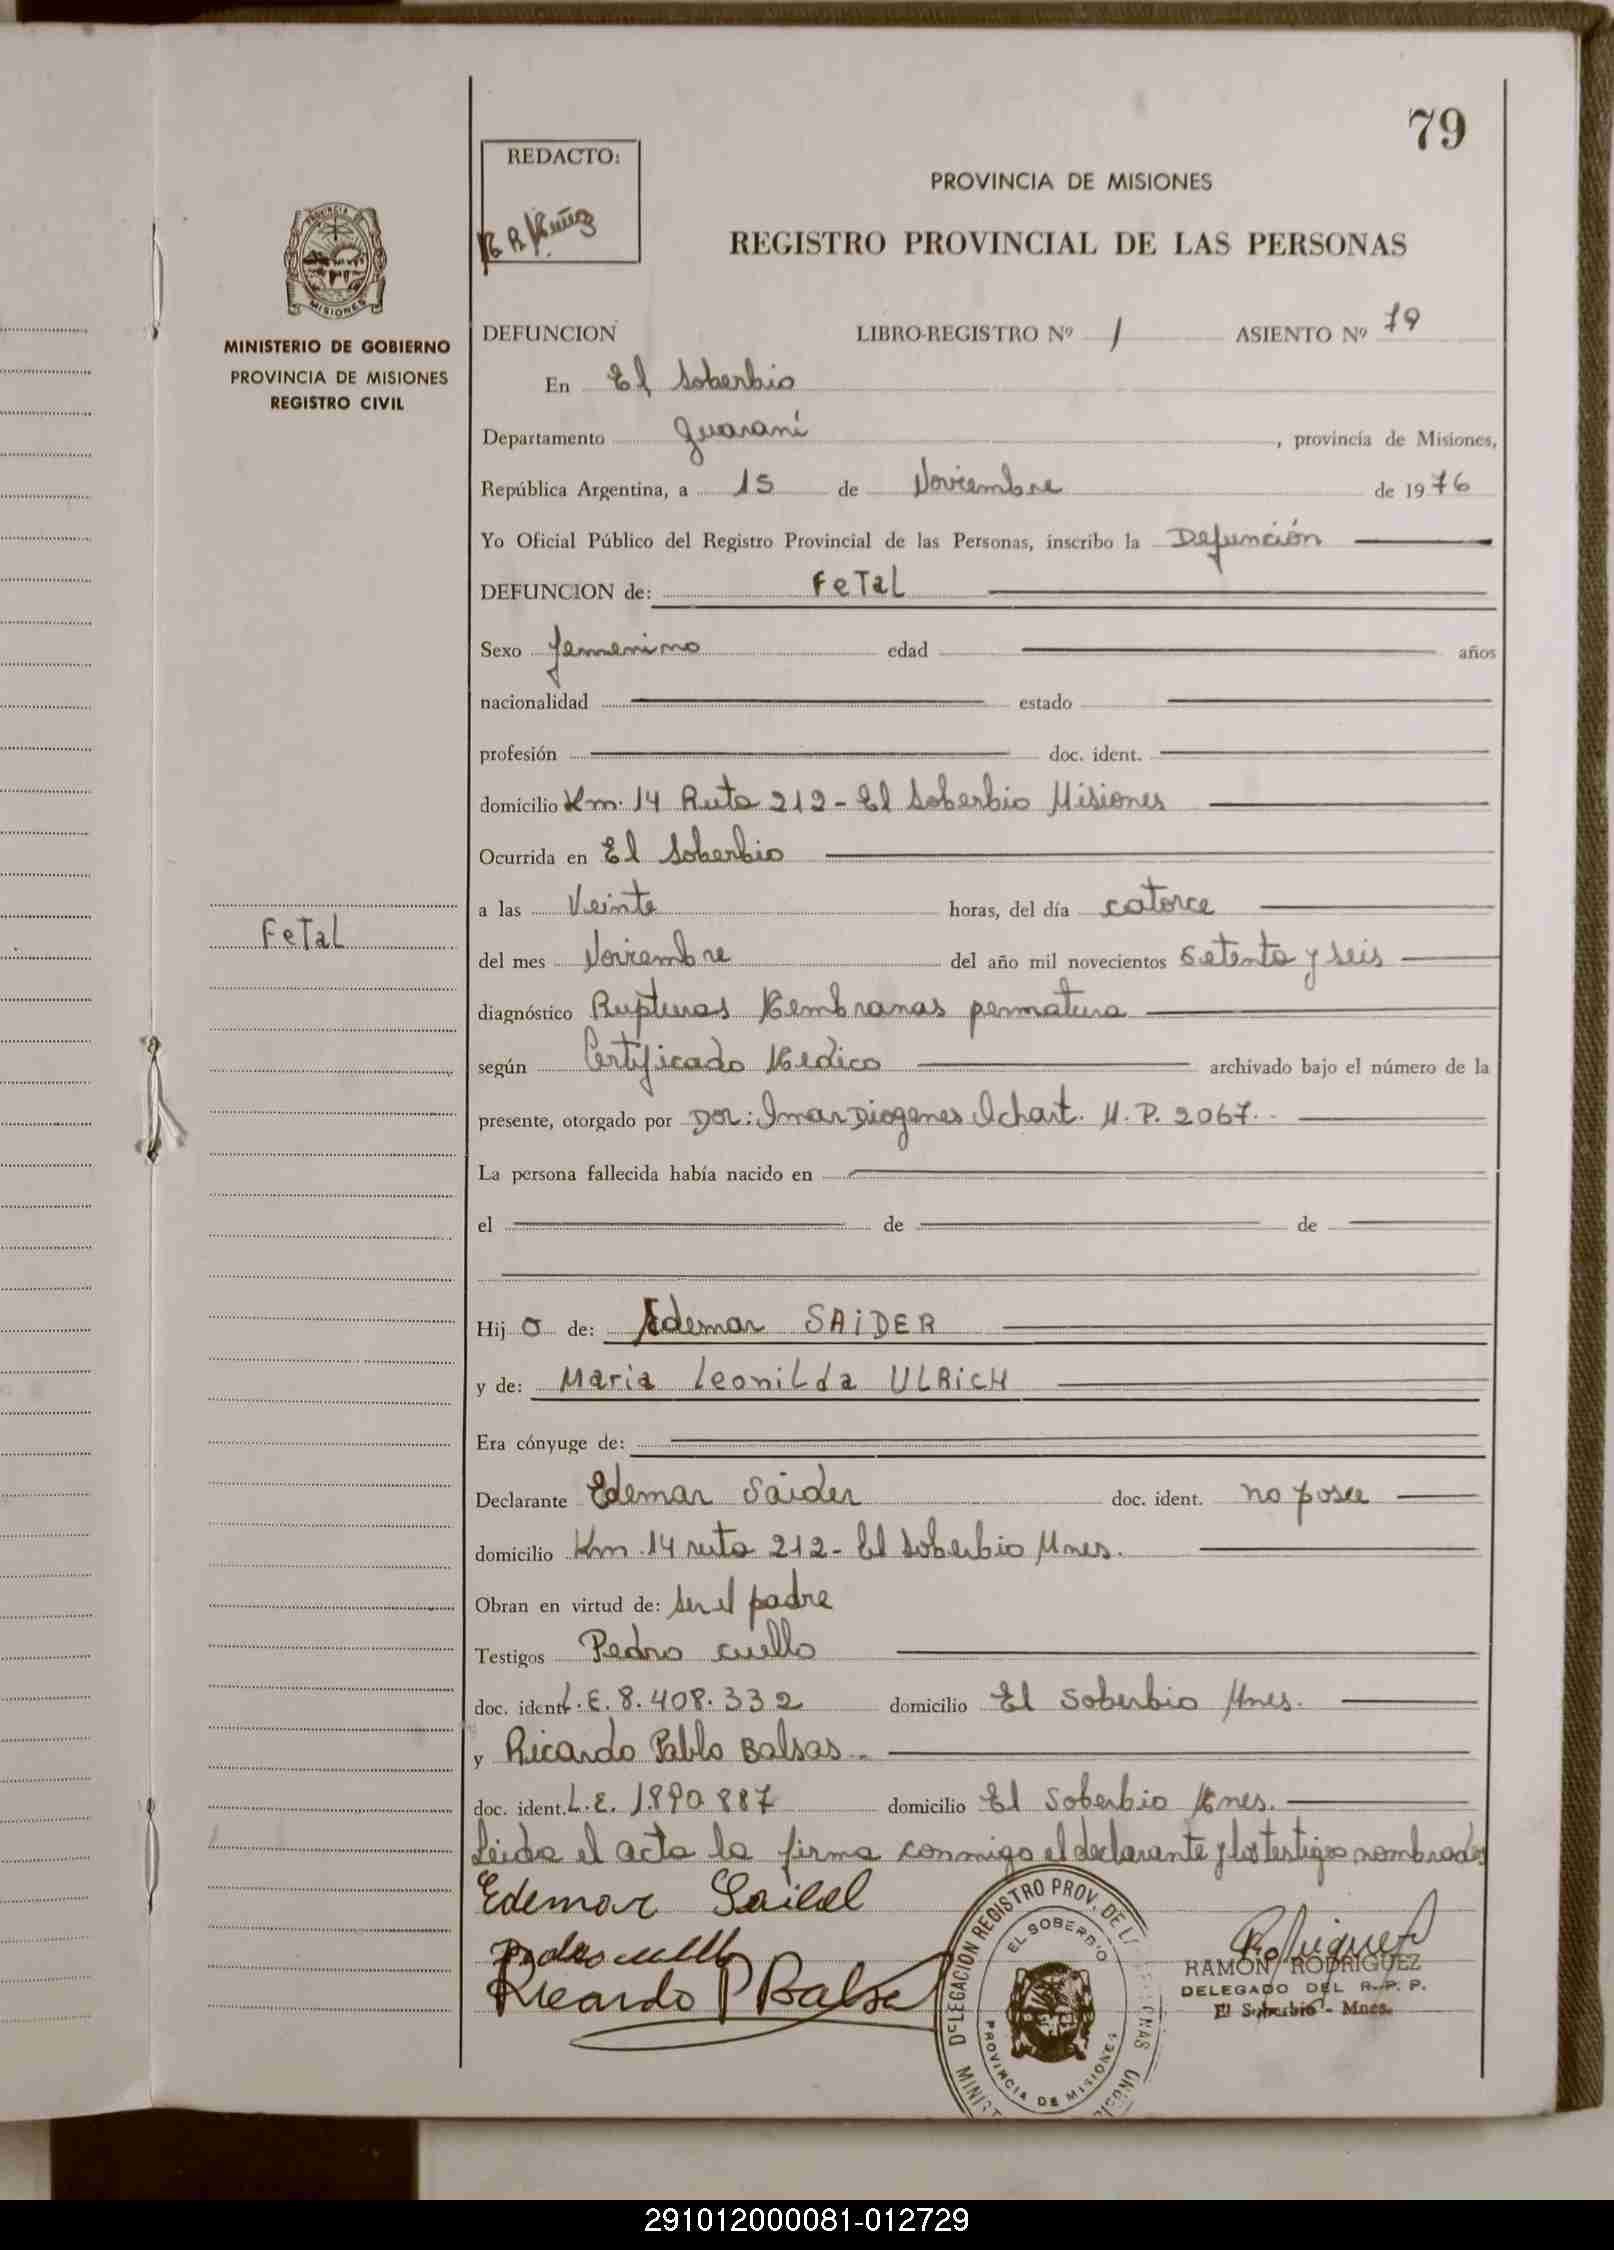 79
REDACTO:
PROVINCIA DE MISIONES
REGISTRO PROVINCIAL DE LAS PERSONAS
MINISTERIO DE GOBIERNO
PROVINCIA DE MISIONES
REGISTRO CIVIL
DEFUNCION LIBRO-REGISTRO Nº 1 ASIENTO Nº 79
En El Soberbio
Departamento Guaraní, provincia de Misiones,
República Argentina, a 15 de Noviembre de 1976
Yo Oficial Público del Registro Provincial de las Personas, inscribo la Defunción
DEFUNCION de: FeTal
Sexo femenino edad años
nacionalidad estado
profesión doc. ident.
domicilio Km. 14 Ruta 212 - El Soberbio Misiones
Ocurrida en El Soberbio
a las Veinte horas, del día catorce
FeTal
del mes Noviembre del año mil novecientos setenta y seis
diagnóstico Rupturas Membranas permatura
según Certificado Medico archivado bajo el número de la
presente, otorgado por Dor: Imar Diogenes Ichart. M.P. 2067.
La persona fallecida había nacido en
el de de
Hij o de: Edemar SAIDER
y de: Maria Leonilda ULRICH
Era cónyuge de:
Declarante Edemar Saider doc. ident. no posee
domicilio Km. 14 ruta 212 - El Soberbio Mnes.
Obran en virtud de: ser el padre
Testigos Pedro cuello
doc. ident. L.E. 8.408.332 domicilio El Soberbio Mnes.
y Ricardo Pablo Balsas
doc. ident. L.E. 1.890.887 domicilio El Soberbio Mnes.
Leida el acta la firma conmigo el declarante y los testigos nombrados
Edemar
Pedro cuello
Ricardo P Balsa
DELEGACION REGISTRO PROV. DE
EL SOBERBIO
PROVINCIA DE MISIONES
RAMON RODRIGUEZ
DELEGADO DEL R.P.P.
El Soberbio - Mnes.
291012000081-012729